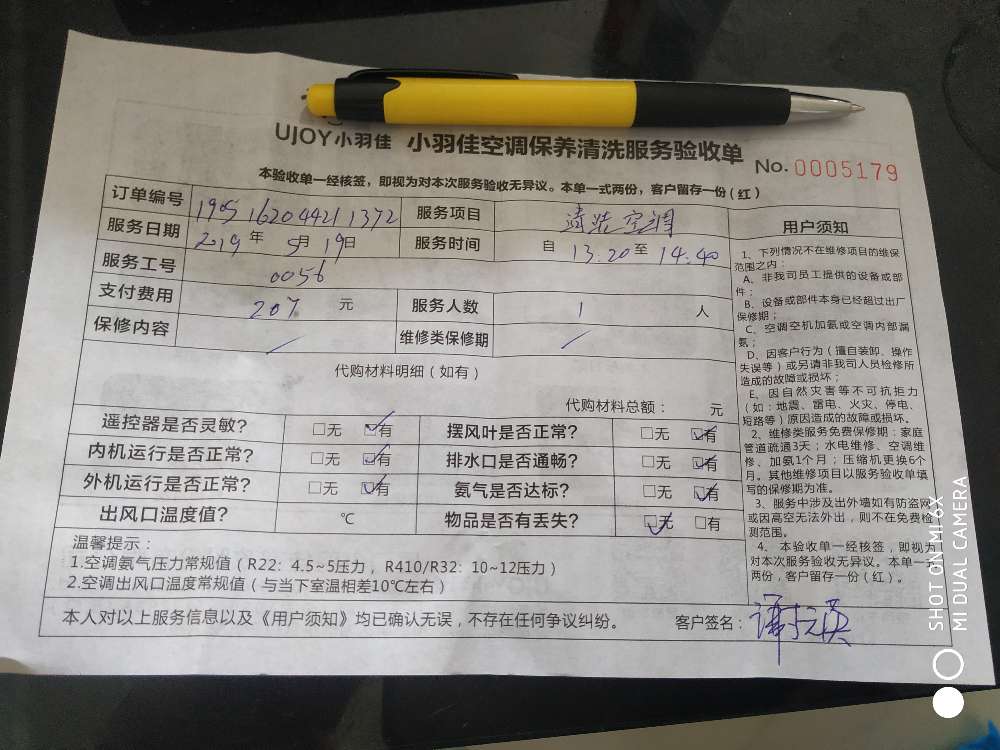 UJOY小羽佳 小羽佳空调保养清洗服务验收单 No. 0005179
本验收单一经核签，即视为对本次服务验收无异议。本单一式两份，客户留存一份（红）
订单编号 1905162044211372 服务项目 清洗空调
服务日期 2019年 5月 19日 服务时间 自 13.20 至 14.40
服务工号 0056
支付费用 207 元 服务人数 1 人
保修内容 / 维修类保修期 /
代购材料明细（如有）
代购材料总额： 元
遥控器是否灵敏？ □无 ☑有 摆风叶是否正常？ □无 ☑有
内机运行是否正常？ □无 ☑有 排水口是否通畅？ □无 ☑有
外机运行是否正常？ □无 ☑有 氨气是否达标？ □无 ☑有
出风口温度值？ ℃ 物品是否有丢失？ ☑无 □有
温馨提示：
1.空调氨气压力常规值（R22：4.5~5压力，R410/R32：10~12压力）
2.空调出风口温度常规值（与当下室温相差10℃左右）
本人对以上服务信息以及《用户须知》均已确认无误，不存在任何争议纠纷。 客户签名：
用户须知
1、下列情况不在维修项目的维保
范围之内：
A、非我司员工提供的设备或部
件；
B、设备或部件本身已经超过出厂
保修期；
C、空调空机加氨或空调内部漏
氨；
D、因客户行为（擅自装卸、操作
失误等）或另请非我司人员检修所
造成的故障或损坏；
E、因自然灾害等不可抗拒力
（如：地震、雷电、火灾、停电、
短路等）原因造成的故障或损坏。
2、维修类服务免费保修期：家庭
管道疏通3天；水电维修、空调维
修、加氨1个月；压缩机更换6个
月。其他维修项目以服务验收单填
写的保修期为准。
3、服务中涉及出外墙如有防盗网
或因高空无法外出，则不在免费检
测范围。
4、本验收单一经核签，即视为
对本次服务验收无异议。本单一式
两份，客户留存一份（红）。
SHOT ON MI 6X
MI DUAL CAMERA